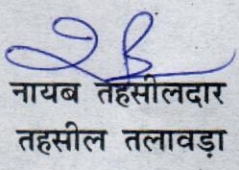 नायब तहसीलदार
तहसील तलावड़ा